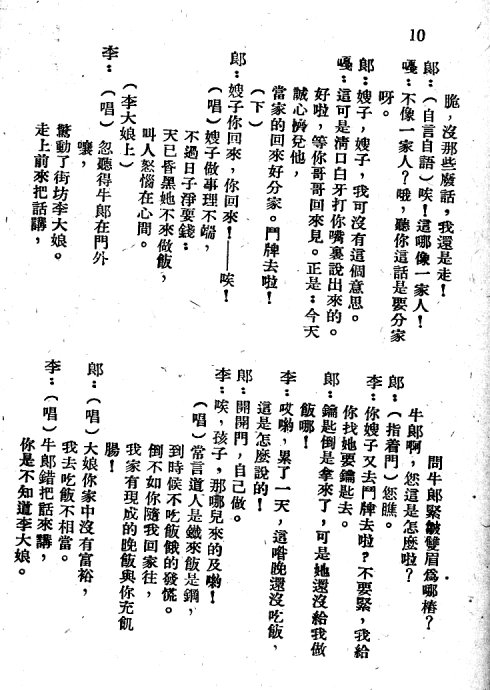 10
脆，沒那些廢話，我還是走！
郎：（自言自語）唉！這哪像一家人！
嘎：不像一家人？哦，聽你這話是要分家
呀。
郎：嫂子，嫂子，我可沒有這個意思。
嘎：這可是淸口白牙打你嘴裏說出來的。
好啦，等你哥哥回來見。正是：今天
誠心擠兌他，
當家的回來好分家。鬥牌去啦！
（下）
郎：嫂子你回來，你回來！——唉！
（唱）嫂子做事理不端，
不過日子淨耍錢：
天已昏黑她不來做飯，
叫人怒惱在心間。
（李大娘上）
李：（唱）忽聽得牛郎在門外
嚷，
驚動了街坊李大娘。
走上前來把話講，
問牛郎緊皺雙眉爲哪樁？
牛郎啊，您這是怎麽啦？
郎：（指着門）您瞧。
李：你嫂子又去鬥牌去啦？不要緊，我給
你找她要鑰匙去。
郎：鑰匙倒是拿來了，可是她還沒給我做
飯哪！
李：哎喲，累了一天，這喒晚還沒吃飯，
這是怎麽說的！
郎：開開門，自己做。
李：唉，孩子，那哪兒來的及喲！
（唱）常言道人是鐵來飯是鋼，
到時候不吃飯餓的發慌。
倒不如你隨我回家往，
我家有現成的晚飯與你充飢
腸！
郎：（唱）大娘你家中沒有富裕，
我去吃飯不相當。
李：（唱）牛郎錯把話來講，
你是不知道李大娘。